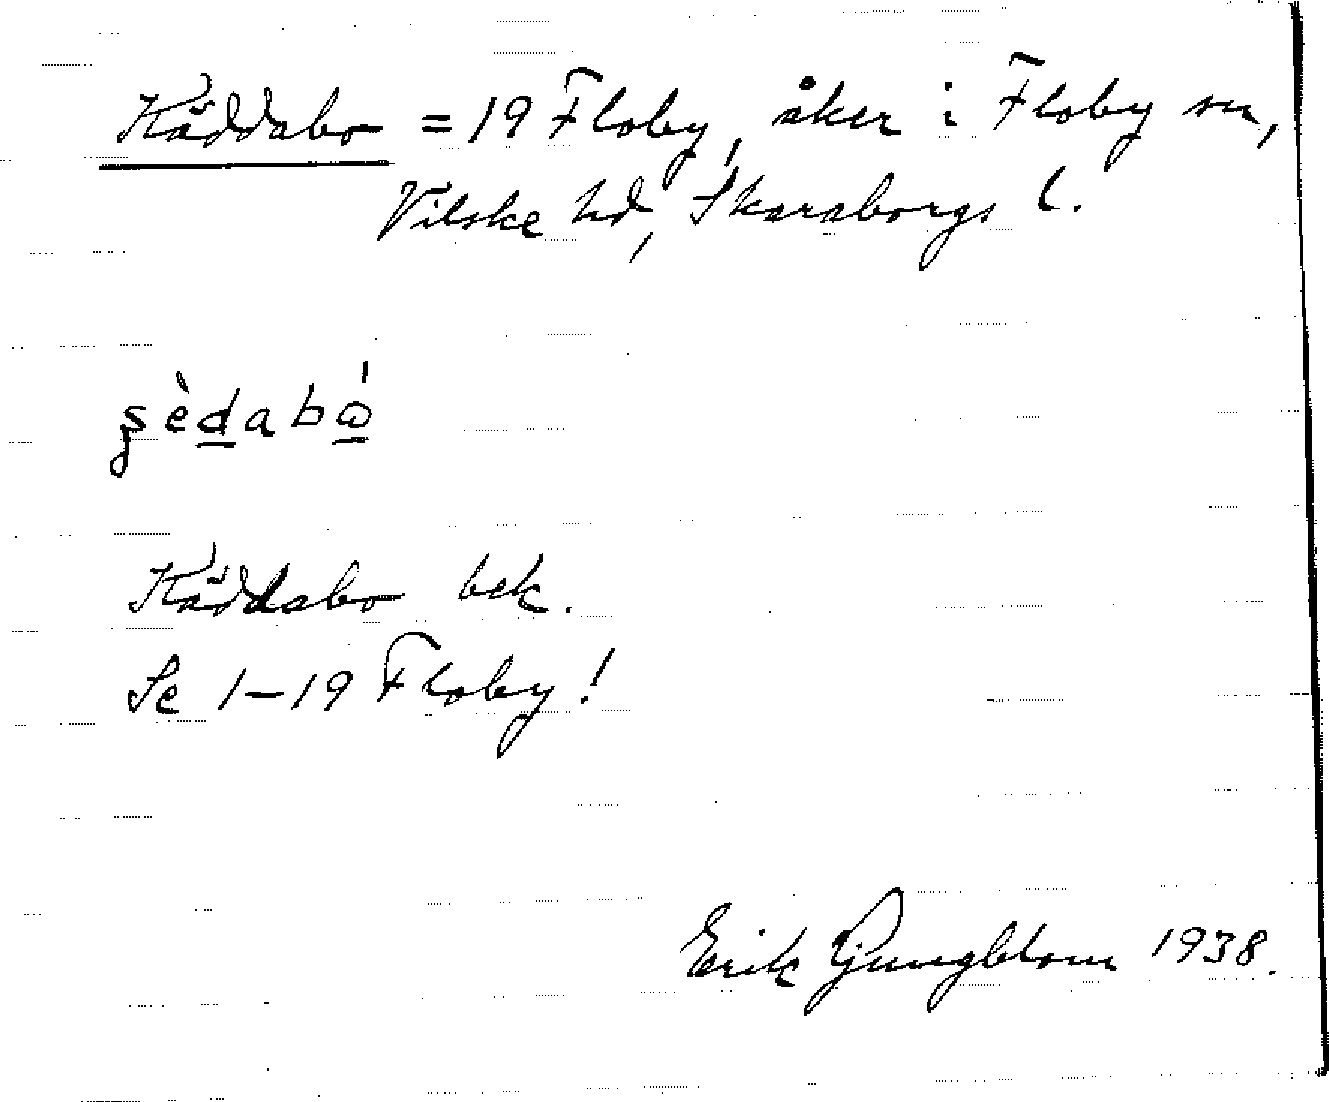 Käddabo = 19 Floby, åker i Floby sn,
Vilske hd, Skaraborgs l.
Käddabo bek.
Se 1-19 Floby!
Erik Ljungblom 1938.